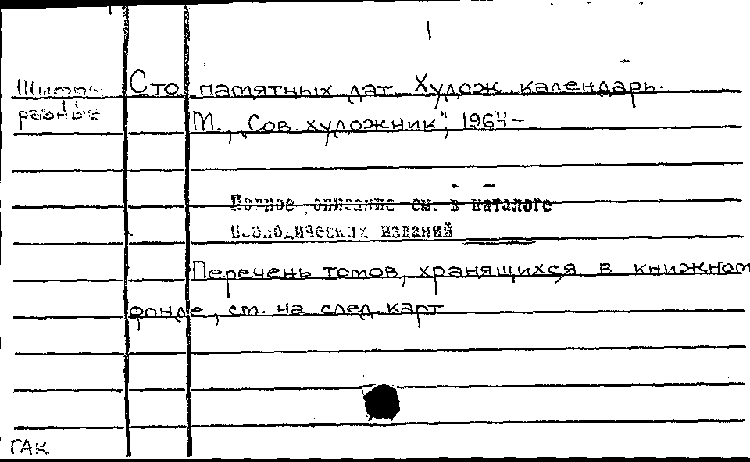 1
Шифры Сто памятных дат. Худож. календарь.
разные М., "Сов. художник", 1964-
Полное описание см. в каталоге
периодических изданий
Перечень томов, хранящихся в книжном
фонде, см. на след. карт
ГАК